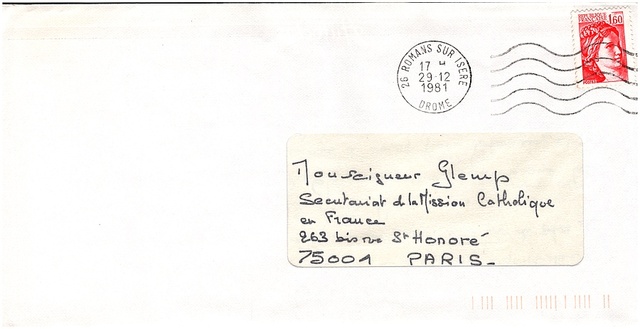 REPUBLIQUE FRANÇAISE 1,60
26 ROMANS SUR ISERE
17 H
29-12
1981
DROME
Monseigneur Glemp
Secretariat de la Mission Catholique
en France
263 bis rue St Honoré
75001 PARIS_